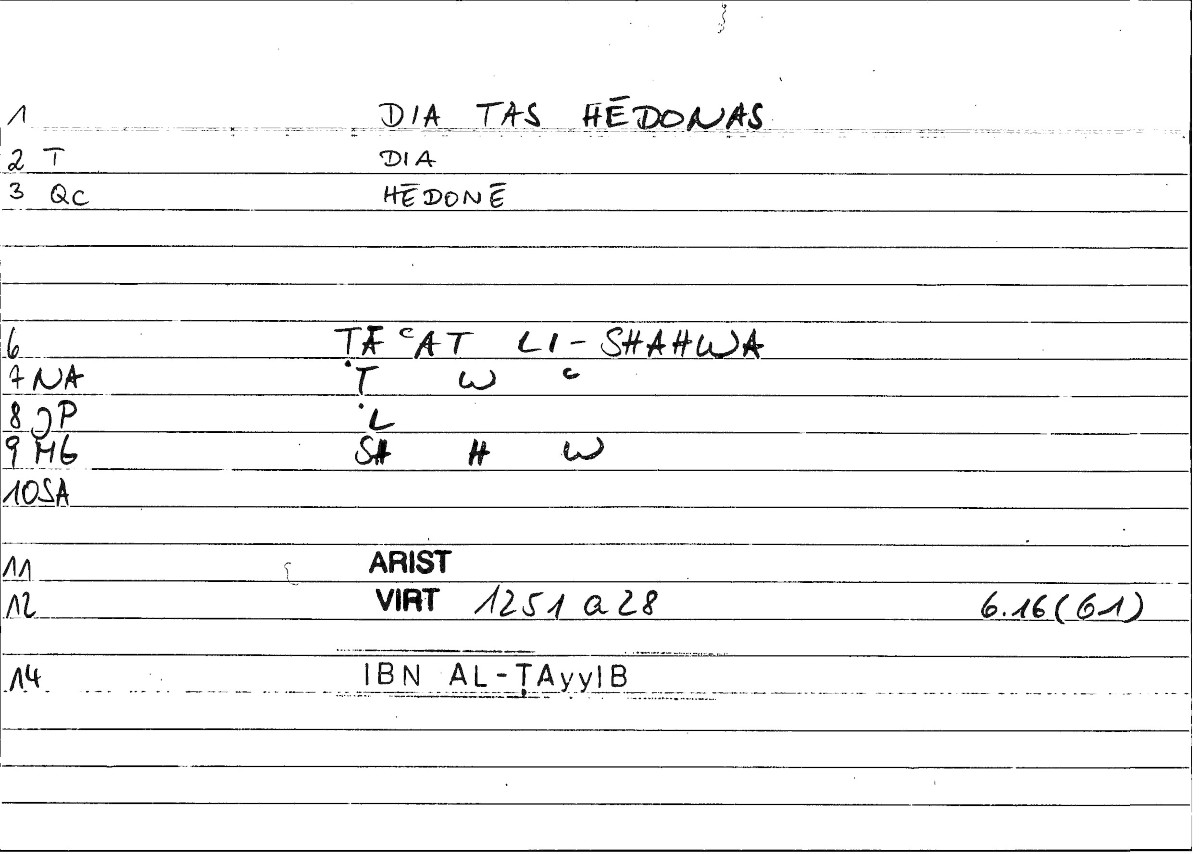 1 DIA TAS HĒDONAS
2 T DIA
3 QC HĒDONĒ
6 ṬĀʿAT LI-SHAHWA
7 NA Ṭ W ʿ
8 JP L
9 MG SH H W
10 SA
11 ARIST
12 VIRT 1251 a 28 6.16(61)
14 IBN AL-ṬAyyIB